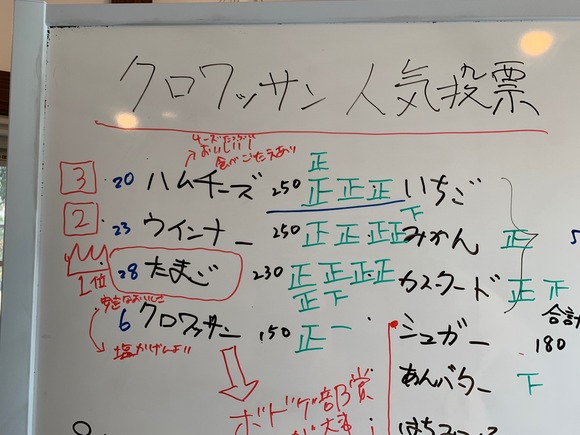 クロワッサン 人気投票
チーズたっぷり
おいしい!
食べごたえあり
正
3 20 ハムチーズ 250 正 正 正 いちご
2 23 ウインナー 250 正 正 正 正 下 みかん 正
1位 28 たまご 230 正 正 正 正 正 下 カスタード 正 下
6 クロワッサン 150 正 一 シュガー 180
合計
塩かげんよし!!
あんバター 下
ボドゲ部賞